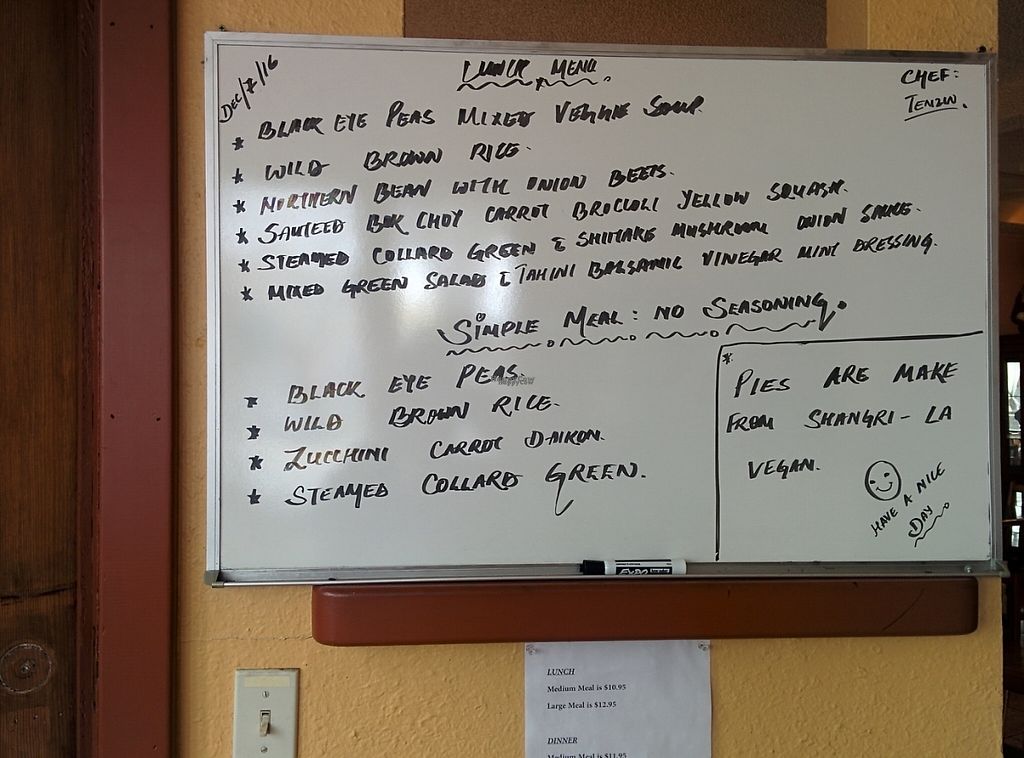 DEC/7/16
LUNCH MENU
CHEF:
TENZIN.
* BLACK EYE PEAS MIXED VEGGIE SOUP.
* WILD BROWN RICE.
* NORTHERN BEAN WITH ONION BEETS.
* SAUTEED BOK CHOY CARROT BROCCOLI YELLOW SQUASH.
* STEAMED COLLARD GREEN & SHITAKE MUSHROOM ONION SAUCE.
* MIXED GREEN SALAD & TAHINI BALSAMIC VINEGAR MINT DRESSING.
SIMPLE MEAL: NO SEASONING.
* BLACK EYE PEAS.
* WILD BROWN RICE.
* ZUCCHINI CARROT DAIKON.
* STEAMED COLLARD GREEN.
* PIES ARE MAKE
FROM SHANGRI-LA
VEGAN.
HAVE A NICE
DAY
EXPO
LUNCH
Medium Meal is $10.95
Large Meal is $12.95
DINNER
Medium Meal is $11.95